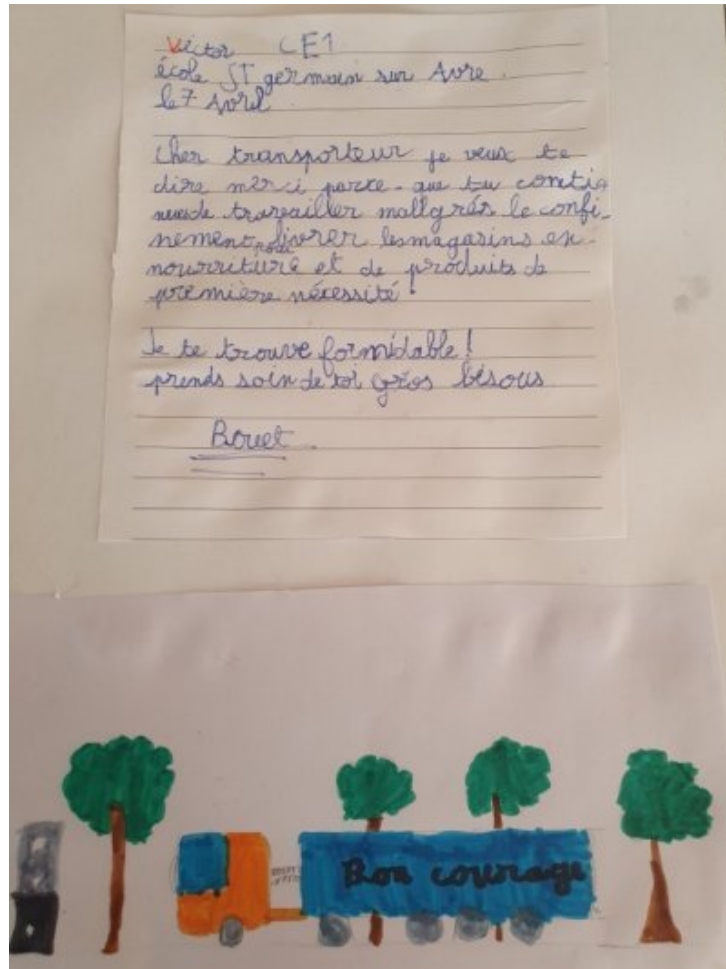 Victor CE1
école ST germain sur Avre.
le 7 Avril
Cher transporteur je veux te
dire merci parce-que tu contin
nuede travailler mallgrés le confi-
nement pour livrer lesmagasins en
nourriture et de produits de
première nécessité.
Je te trouve formidable!
prends soin de toi gros bisous
Bouet
Bon courage